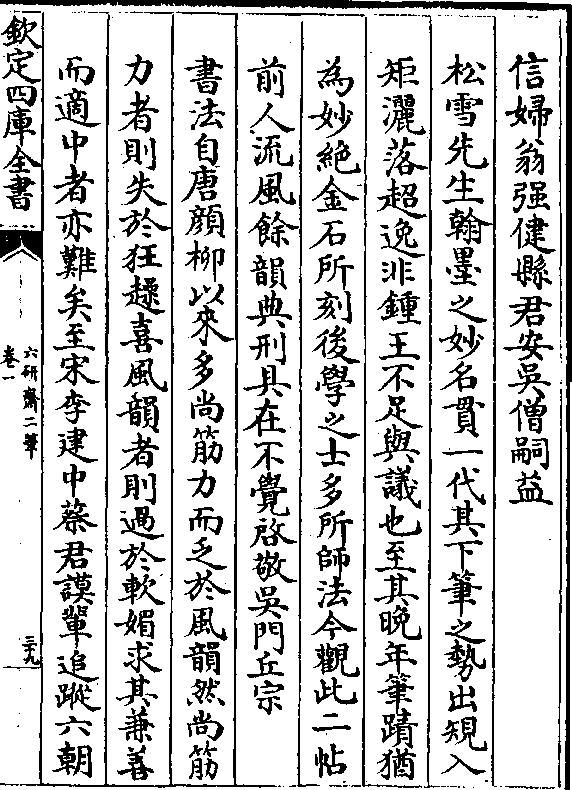 信婦翁强健縣君安吳僧嗣益
松雪先生翰墨之妙名貫一代其下筆之勢出規入
矩灑落超逸非鍾王不足與議也至其晚年筆蹟猶
為妙絶金石所刻後學之士多所師法今觀此二帖
前人流風餘韻典刑具在不覺啓敬吳門丘宗
書法自唐顔柳以來多尚筋力而乏於風韻然尚筋
力者則失於狂趮喜風韻者則過於軟媚求其兼善
而適中者亦難矣至宋李建中蔡君謨輩追蹤六朝
欽定四庫全書
六研齋二筆
卷一
三九